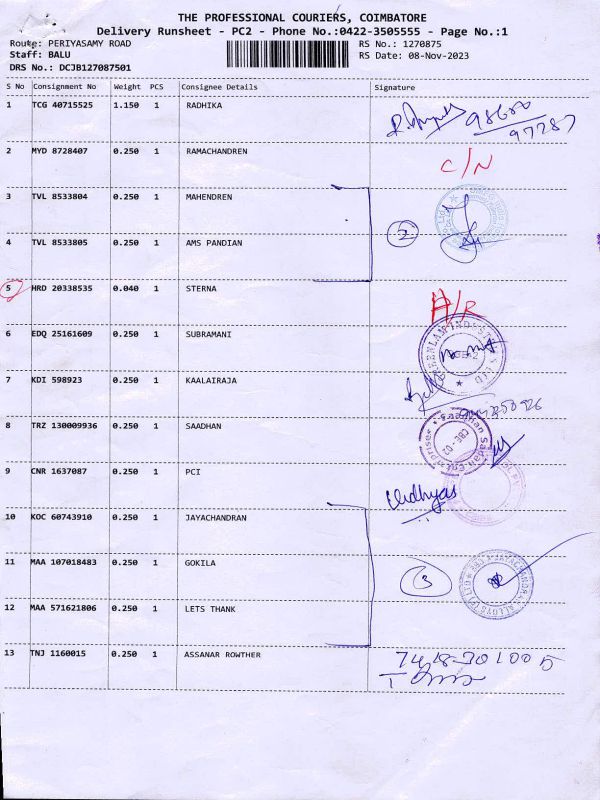 THE PROFESSIONAL COURIERS, COIMBATORE
Delivery Runsheet - PC2 - Phone No.:0422-3505555 - Page No.:1
Route: PERIYASAMY ROAD RS No.: 1270875
Staff: BALU RS Date: 08-Nov-2023
DRS No.: DCJB127087501
S No Consignment No Weight PCS Consignee Details Signature
1 TCG 40715525 1.150 1 RADHIKA
97287
2 MYD 8728407 0.250 1 RAMACHANDREN C/N
3 TVL 8533804 0.250 1 MAHENDREN
2
4 TVL 8533805 0.250 1 AMS PANDIAN
5 HRD 20338535 0.040 1 STERNA
6 EDQ 25161609 0.250 1 SUBRAMANI
7 KDI 598923 0.250 1 KAALAIRAJA
8 TRZ 130009936 0.250 1 SAADHAN
9 CNR 1637087 0.250 1 PCI
Vidhyas
10 KOC 60743910 0.250 1 JAYACHANDRAN
11 MAA 107018483 0.250 1 GOKILA
3
12 MAA 571621806 0.250 1 LETS THANK
13 TNJ 1160015 0.250 1 ASSANAR ROWTHER